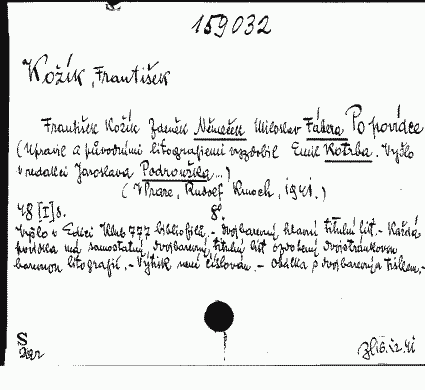 159032
Kožík, František
František Kožík Zdeněk Němeček Miloslav Fábera Po povídce
(Upravil a původními litografiemi vyzdobil Emil Kotrba. Vyšlo
v redakci Jaroslava Podroužka...)
(V Praze, Rudolf Kmoch, 1941.)
48 [I] s. 8°.
Vyšlo v Edici Klub 777 bibliofilů. - Dvojbarevný hlavní titulní list. - Každá
povídka má samostatný dvojbarevný titulní list ozdobený dvojstránkovou
barevnou litografií. - Výtisk není číslován. - Obálka s dvojbarevným tiskem. -
S